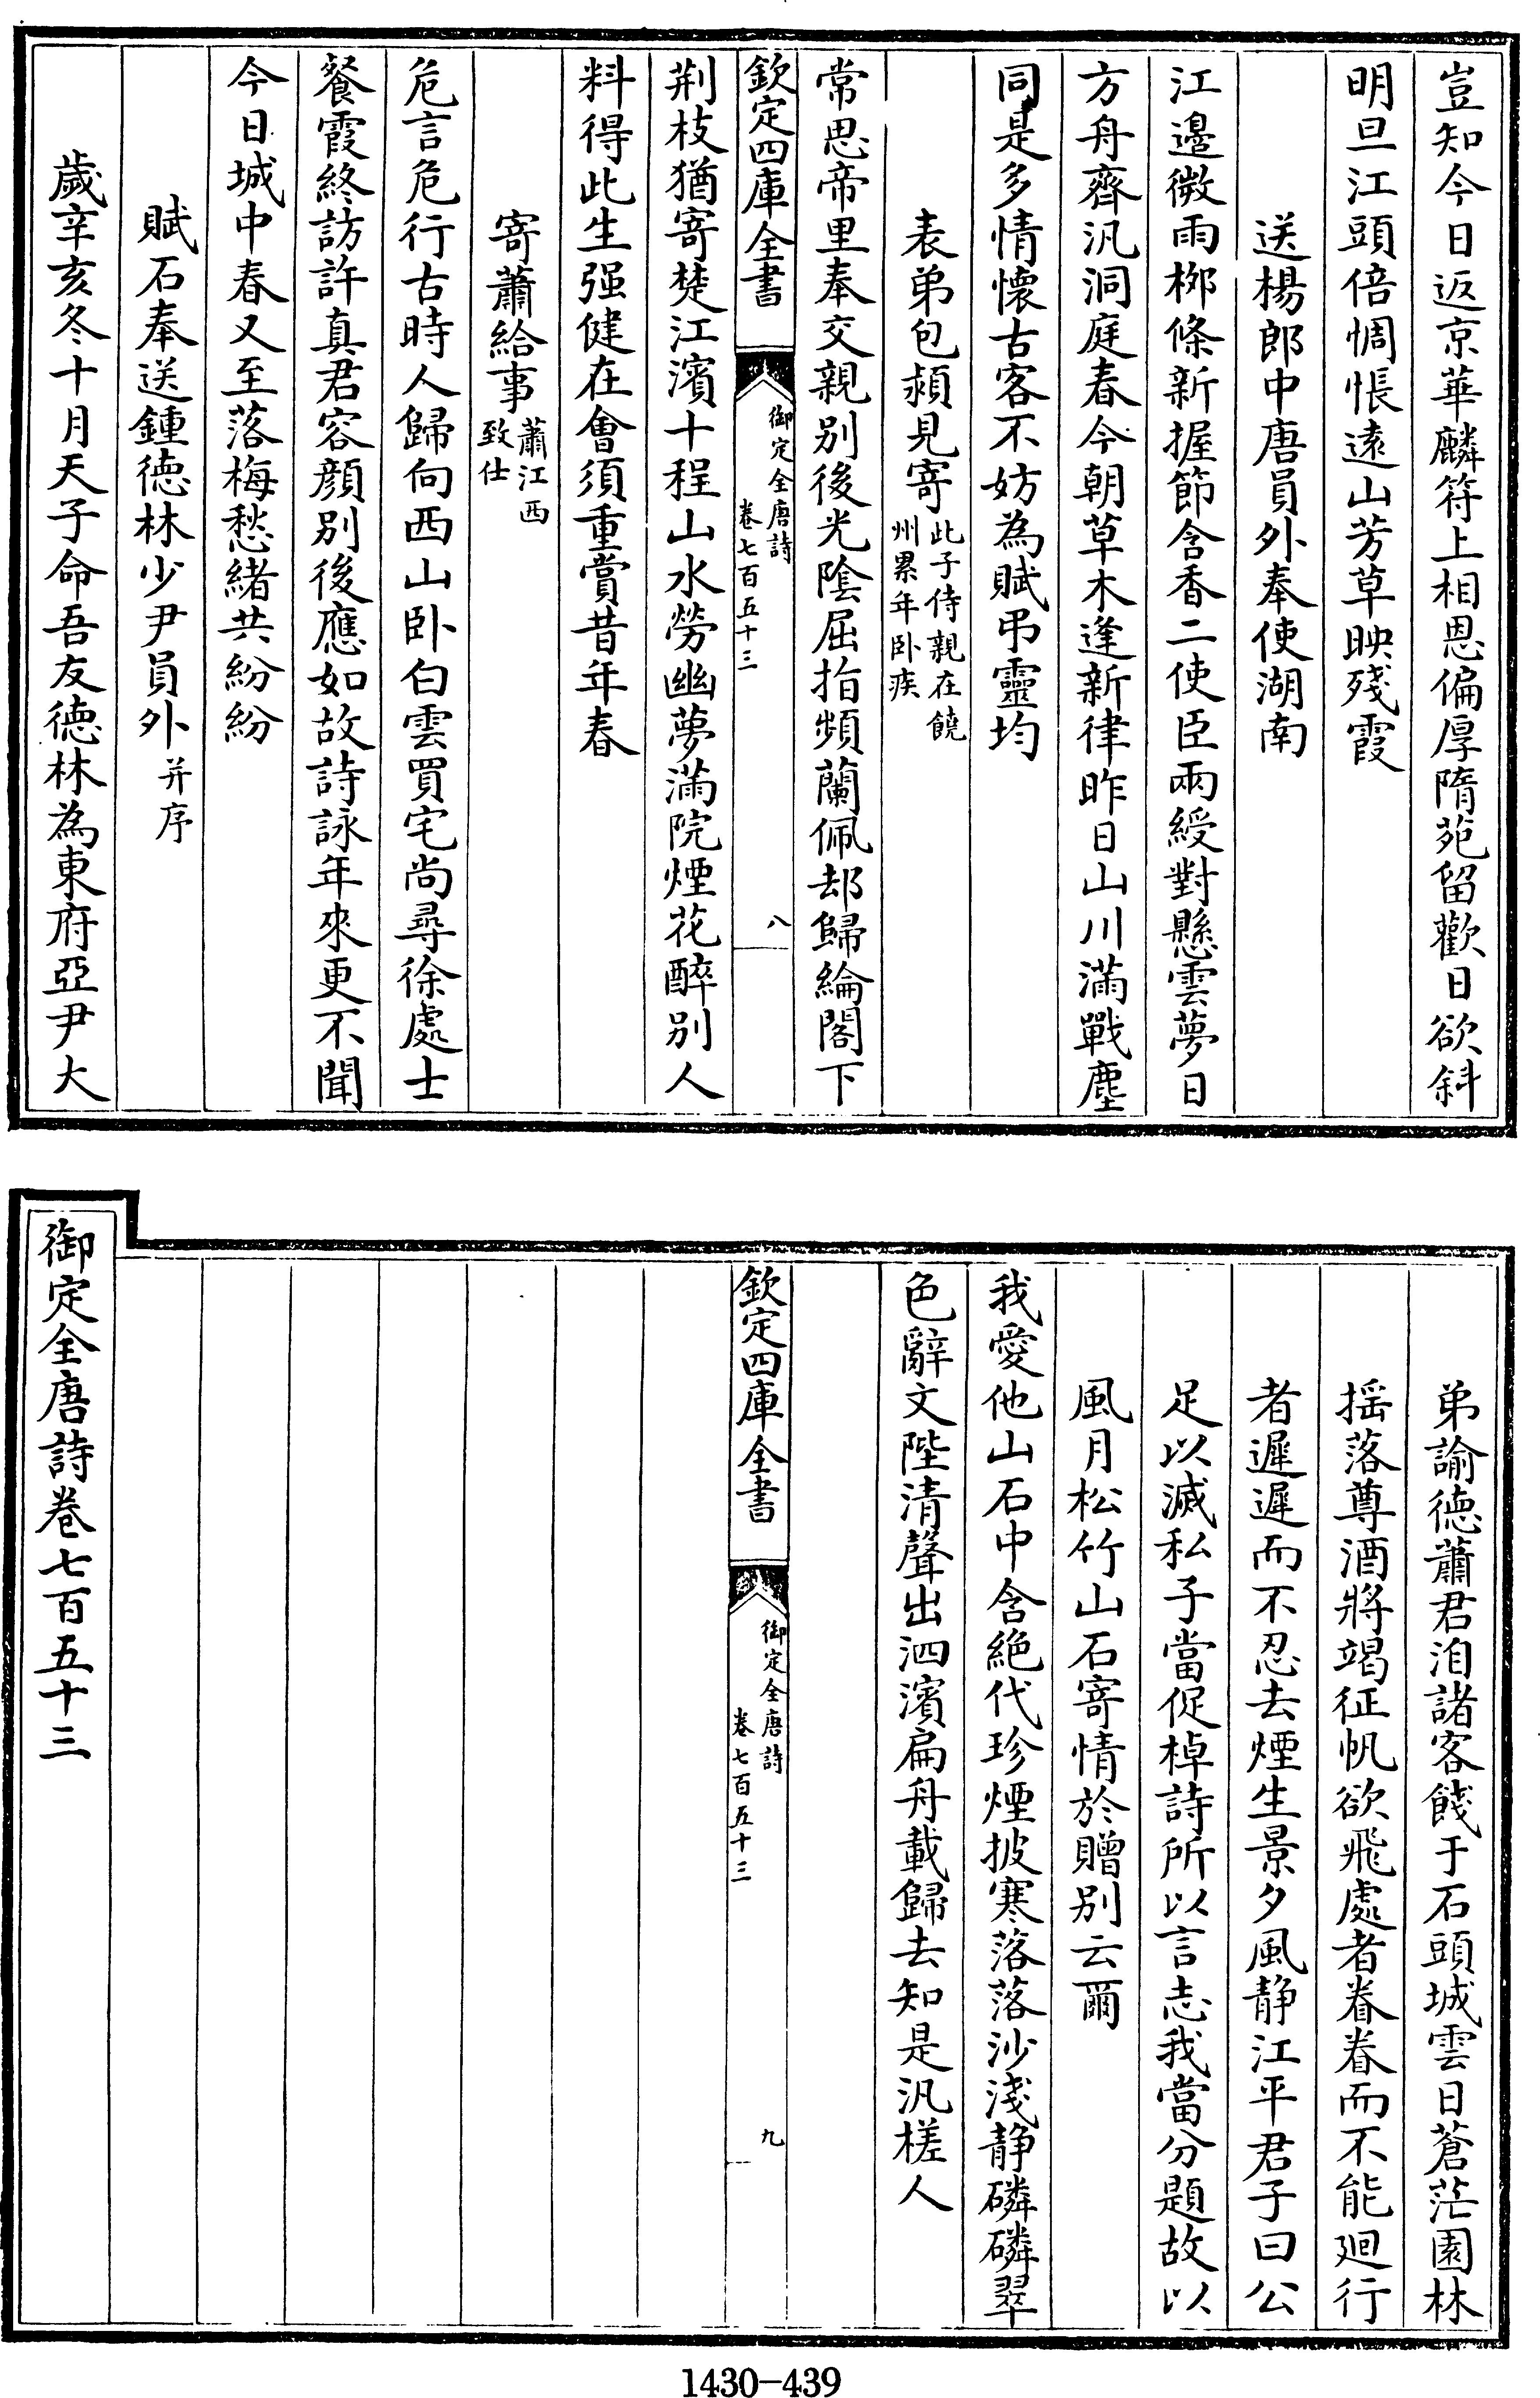 豈知今日返京華麟符上相恩偏厚隋苑留歡日欲斜
明旦江頭倍惆悵遠山芳草映殘霞
送楊郎中唐員外奉使湖南
江邊微雨栁條新握節含香二使臣兩綬對懸雲夢日
方舟齊汎洞庭春今朝草木逢新律昨日山川滿戰塵
同是多情懷古客不妨為賦弔靈均
表弟包頴見寄此子侍親在饒
州累年卧疾
常思帝里奉交親别後光陰屈指頻蘭佩却歸綸閣下
欽定四庫全書
御定全唐詩
卷七百五十三
八
荆枝猶寄楚江濱十程山水勞幽夢滿院煙花醉别人
料得此生强健在㑹須重賞昔年春
寄蕭給事蕭江西
致仕
危言危行古時人歸向西山卧白雲買宅尚尋徐處士
餐霞終訪許真君容顔别後應如故詩詠年來更不聞
今日城中春又至落梅愁緒共紛紛
賦石奉送鍾徳林少尹員外并序
歲辛亥冬十月天子命吾友徳林為東府亞尹大
弟諭徳蕭君洎諸客餞于石頭城雲日蒼茫園林
揺落尊酒將竭征帆欲飛處者眷眷而不能廻行
者遲遲而不忍去煙生景夕風靜江平君子曰公
足以滅私子當促棹詩所以言志我當分題故以
風月松竹山石寄情於贈别云爾
我愛他山石中含絶代珍煙披寒落落沙淺靜磷磷翠
色辭文陛清聲出泗濱扁舟載歸去知是汎槎人
欽定四庫全書
御定全唐詩
卷七百五十三
九
御定全唐詩卷七百五十三
1430-439